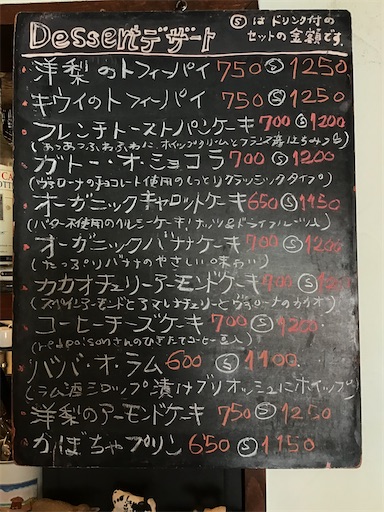 Dessert デザート
Ⓢ は ドリンク付の
セットの金額です.
洋梨のトフィーパイ 750 Ⓢ 1250
キウイのトフィーパイ 750 Ⓢ 1250
フレンチトーストパンケーキ 700 Ⓢ 1200
(あつあつふわふわに、ホイップクリームとフランス産はちみつ
ガトー・オ・ショコラ 700 Ⓢ 1200
(ヴァローナのチョコレート使用のしっとりクラッシックタイプ)
オーガニックキャロットケーキ 650 Ⓢ 1150
(バター不使用のヘルシーケーキ!ナッツ&ドライフルーツ入)
オーガニックバナナケーキ 700 Ⓢ 1200
(たっぷりバナナのやさしい味わい)
カカオチェリーアーモンドケーキ 700 Ⓢ 1200
(スペインアーモンドと チェリーとヴァローナのカカオ)
コーヒーチーズケーキ 700 Ⓢ 1200
( さんのひきたてコーヒー豆入)
ババ・オ・ラム 600 Ⓢ 1100
(ラム酒シロップ漬けブリオッシュにホイップ)
洋梨のアーモンドケーキ 750 Ⓢ 1250
かぼちゃプリン 650 Ⓢ 1150